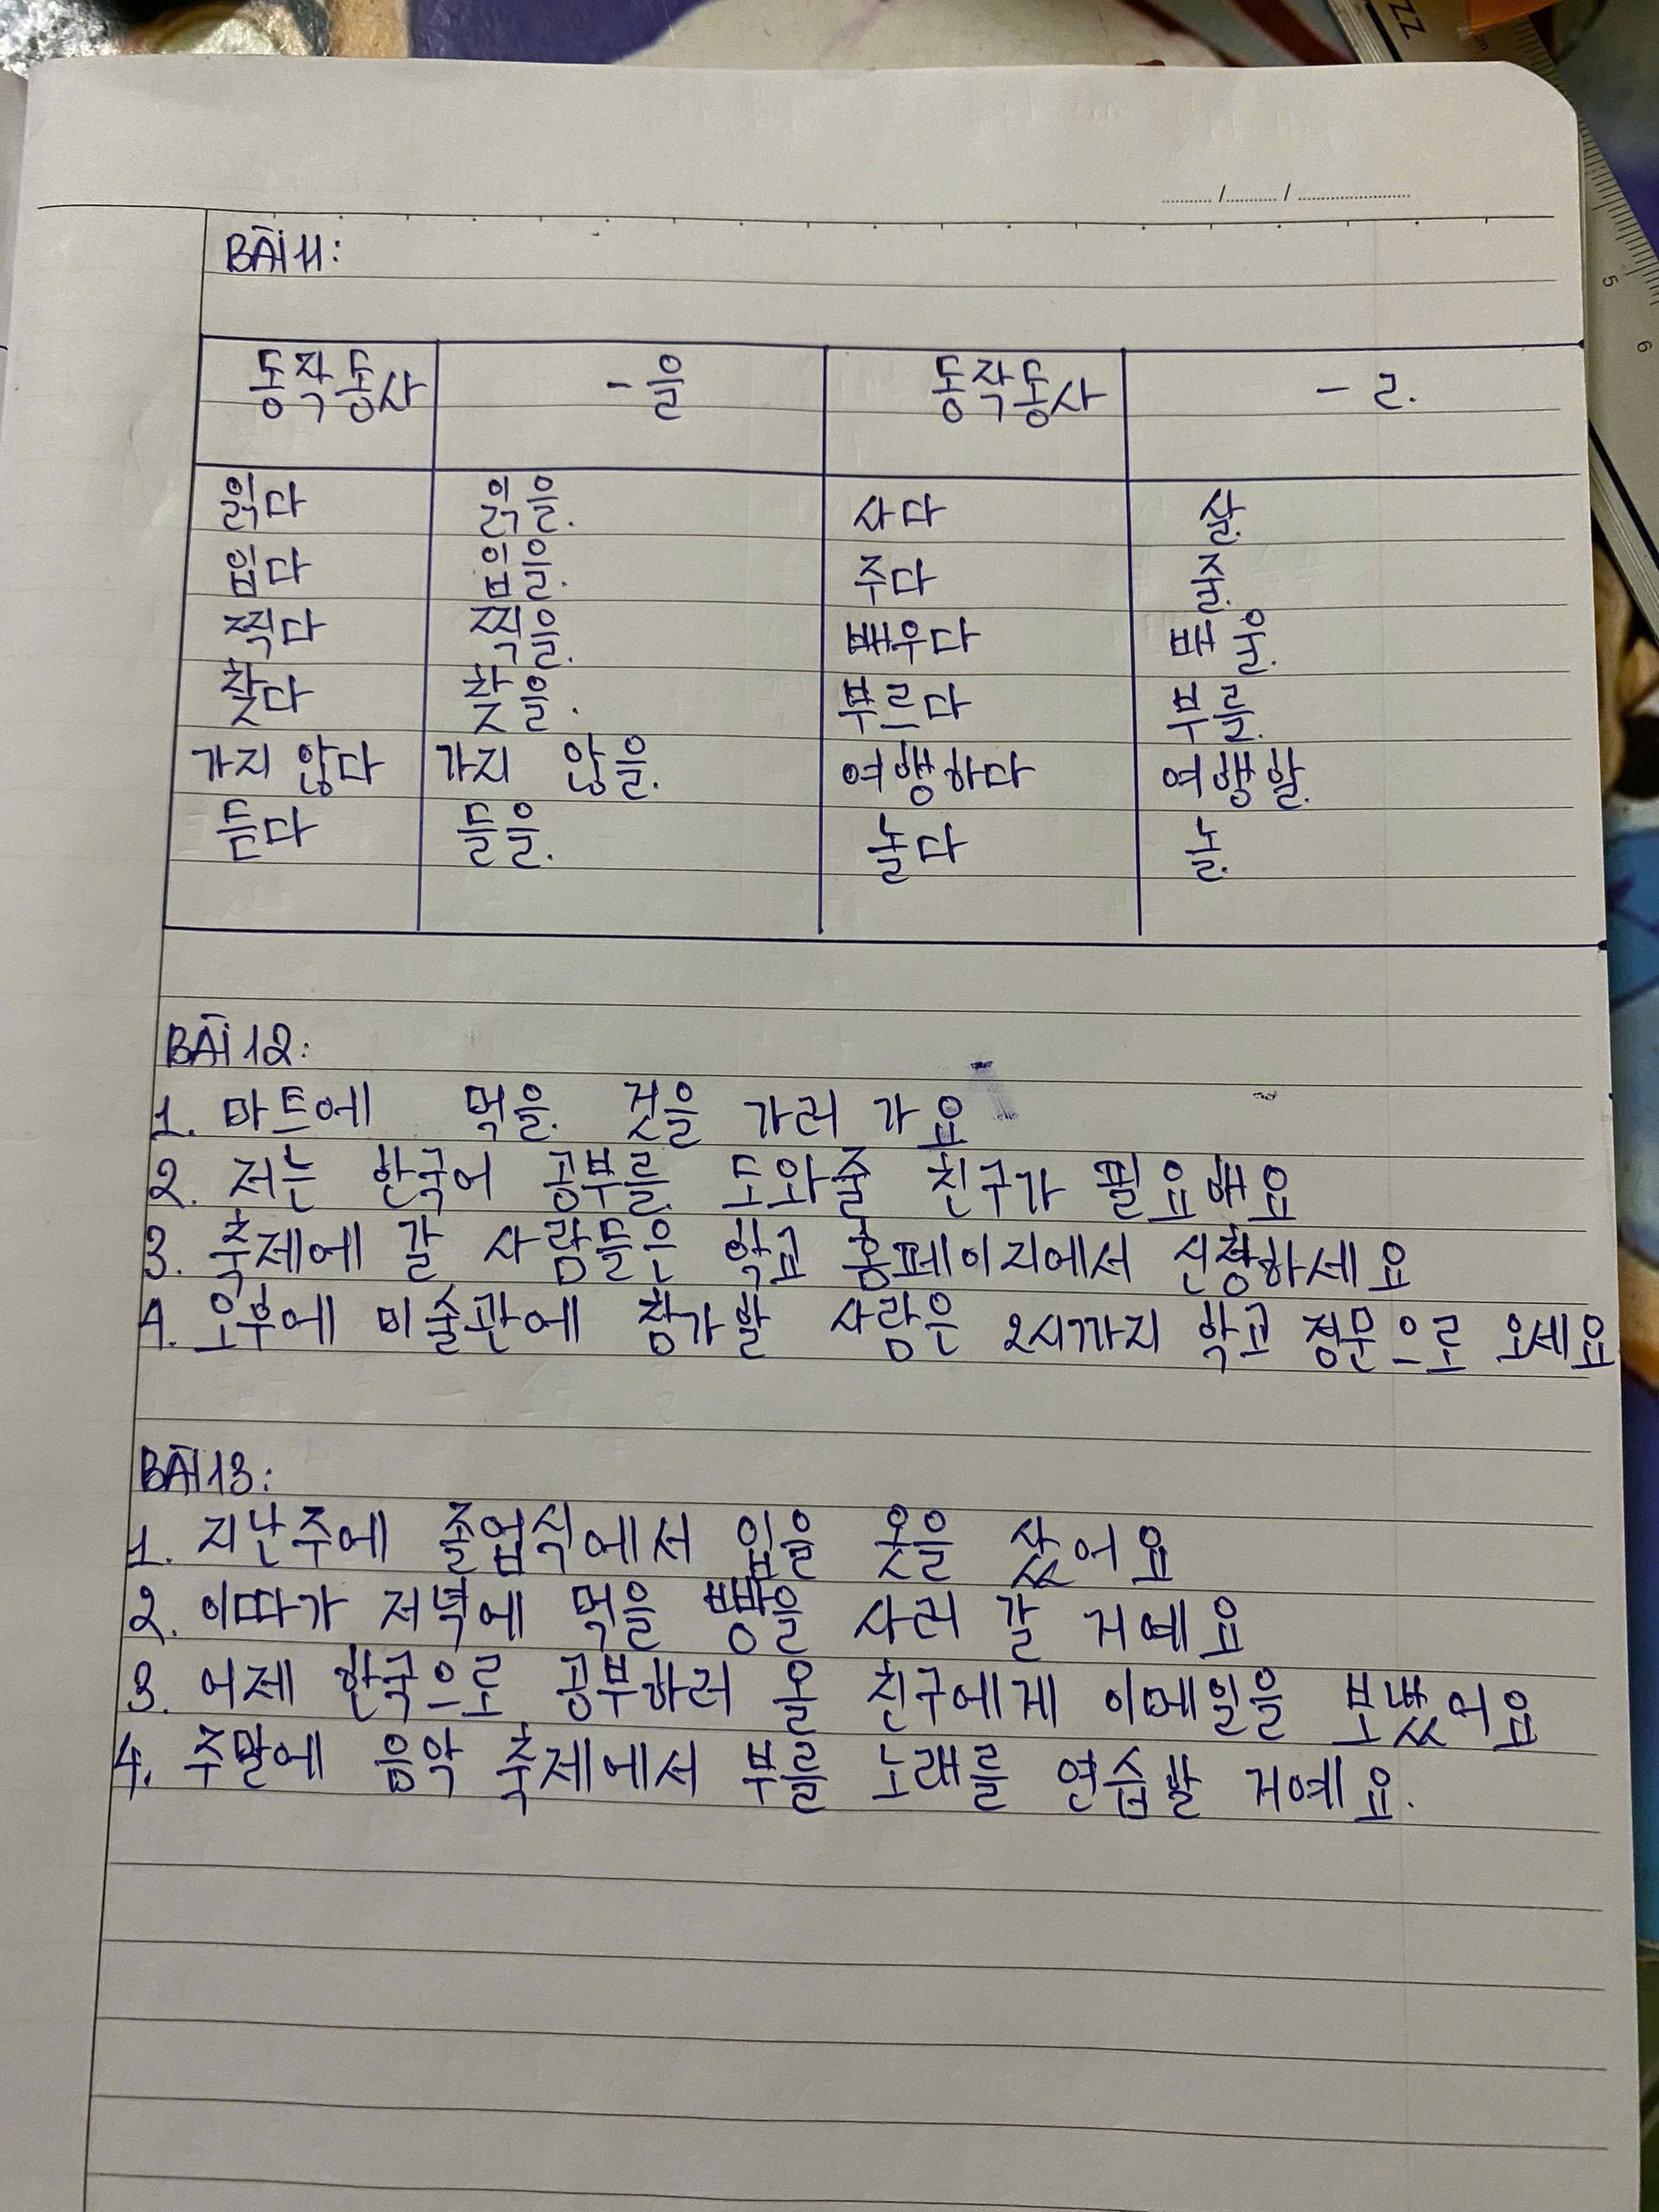 BÀI 11:
동작동사 -을 동작동사 -ㄹ.
읽다 읽을. 사다 살.
입다 입을. 주다 줄.
찍다 찍을. 배우다 배울.
찾다 찾을. 부르다 부를.
가지 않다 가지 않을. 여행하다 여행할.
듣다 들을. 놀다 놀.
BÀI 12:
1. 마트에 먹을. 것을 가러 가요
2. 저는 한국어 공부를. 도와줄 친구가 필요해요
3. 축제에 갈 사람들은 학교 홈페이지에서 신청하세요
4. 오후에 미술관에 참가할 사람은 2시까지 학교 정문으로 오세요
BÀI 13:
1. 지난주에 졸업식에서 입을 옷을 샀어요
2. 이따가 저녁에 먹을 빵을 사러 갈 거예요
3. 어제 한국으로 공부하러 올 친구에게 이메일을 보냈어요
4. 주말에 음악 축제에서 부를 노래를 연습할 거예요.
5
6